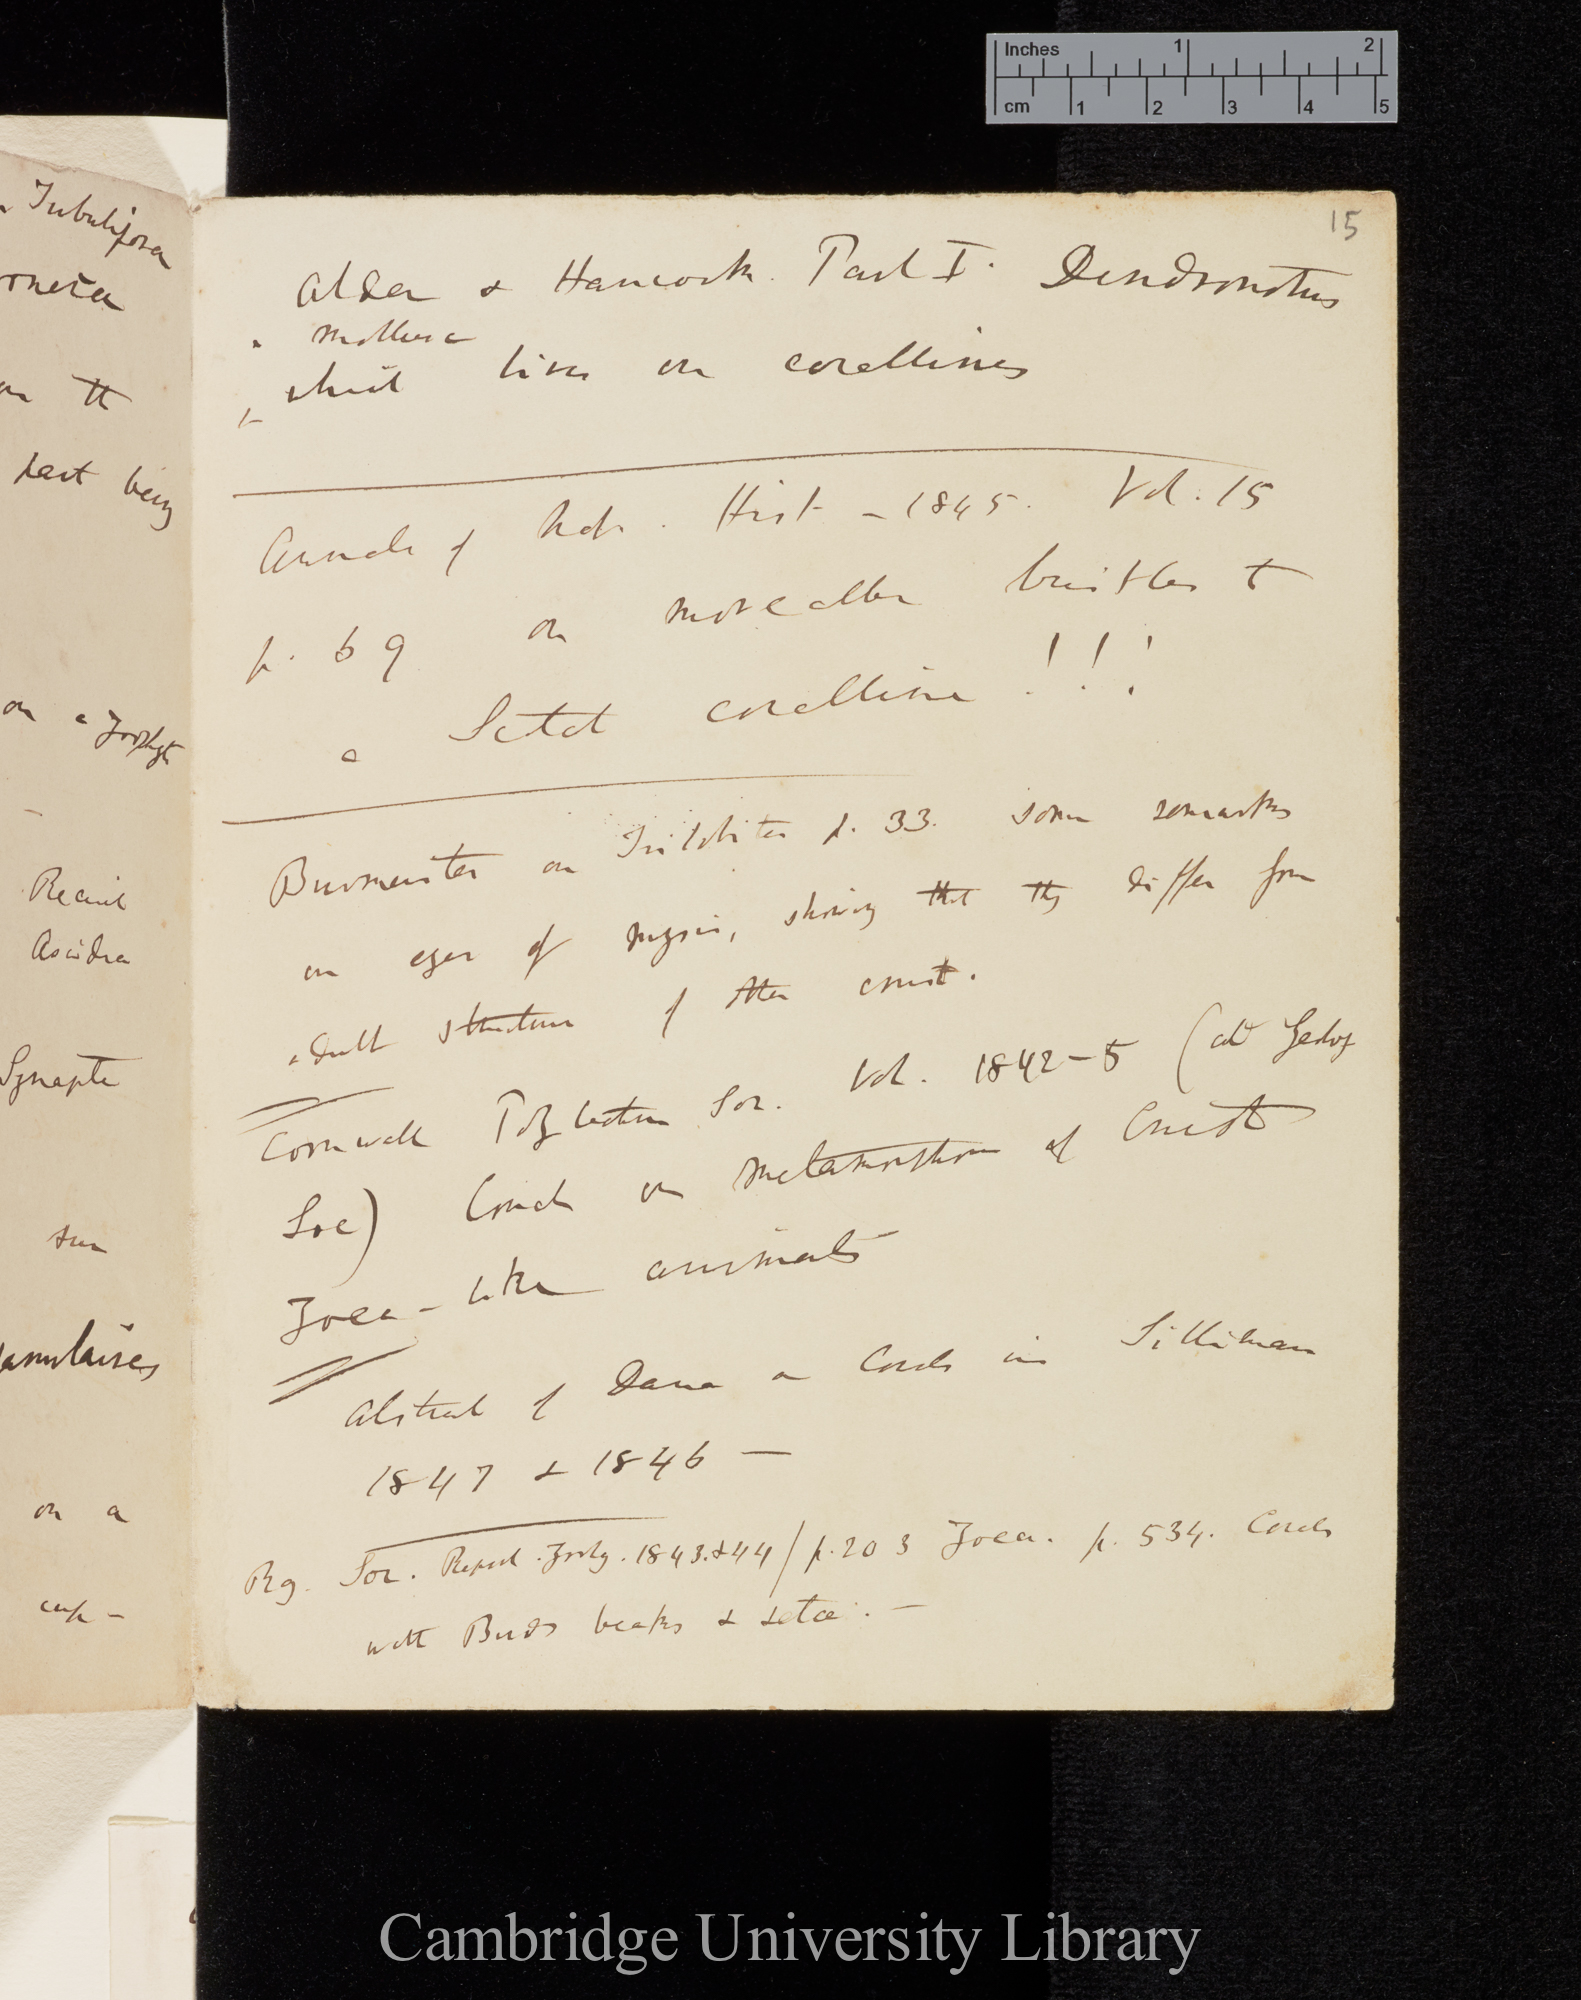 Inches 1 2
cm 1 2 3 4 5
Tubulipora
on the
last being
on a Zoophyte
Recint
Ascidia
Synapta
annulaires
on a
cup –
15
Alder & Hancock. Part I. Dendronotus
a mollusc
which lives on corallines
Annals of Nat. Hist – 1845. Vol. 15
p. 69 on moveable bristles to
a Sertul coralline ! ! !
Burmeister on Trilobites p. 33. some remarks
on eggs of Mysis, showing that they differ from
adult structure of other crust.
Cornwall Polytechnic Soc. Vol. 1842–5 (at Geolog
Soc) Couch on metamorphosis of Crust
Zoea – like animals
Abstract of Dana on Corals in Silliman
1847 & 1846 —
Ray. Soc. Report. Zoolog. 1843.&44 / p. 203 Zoea. p. 534. Corals
with Birds beaks & setæ. —
Cambridge University Library